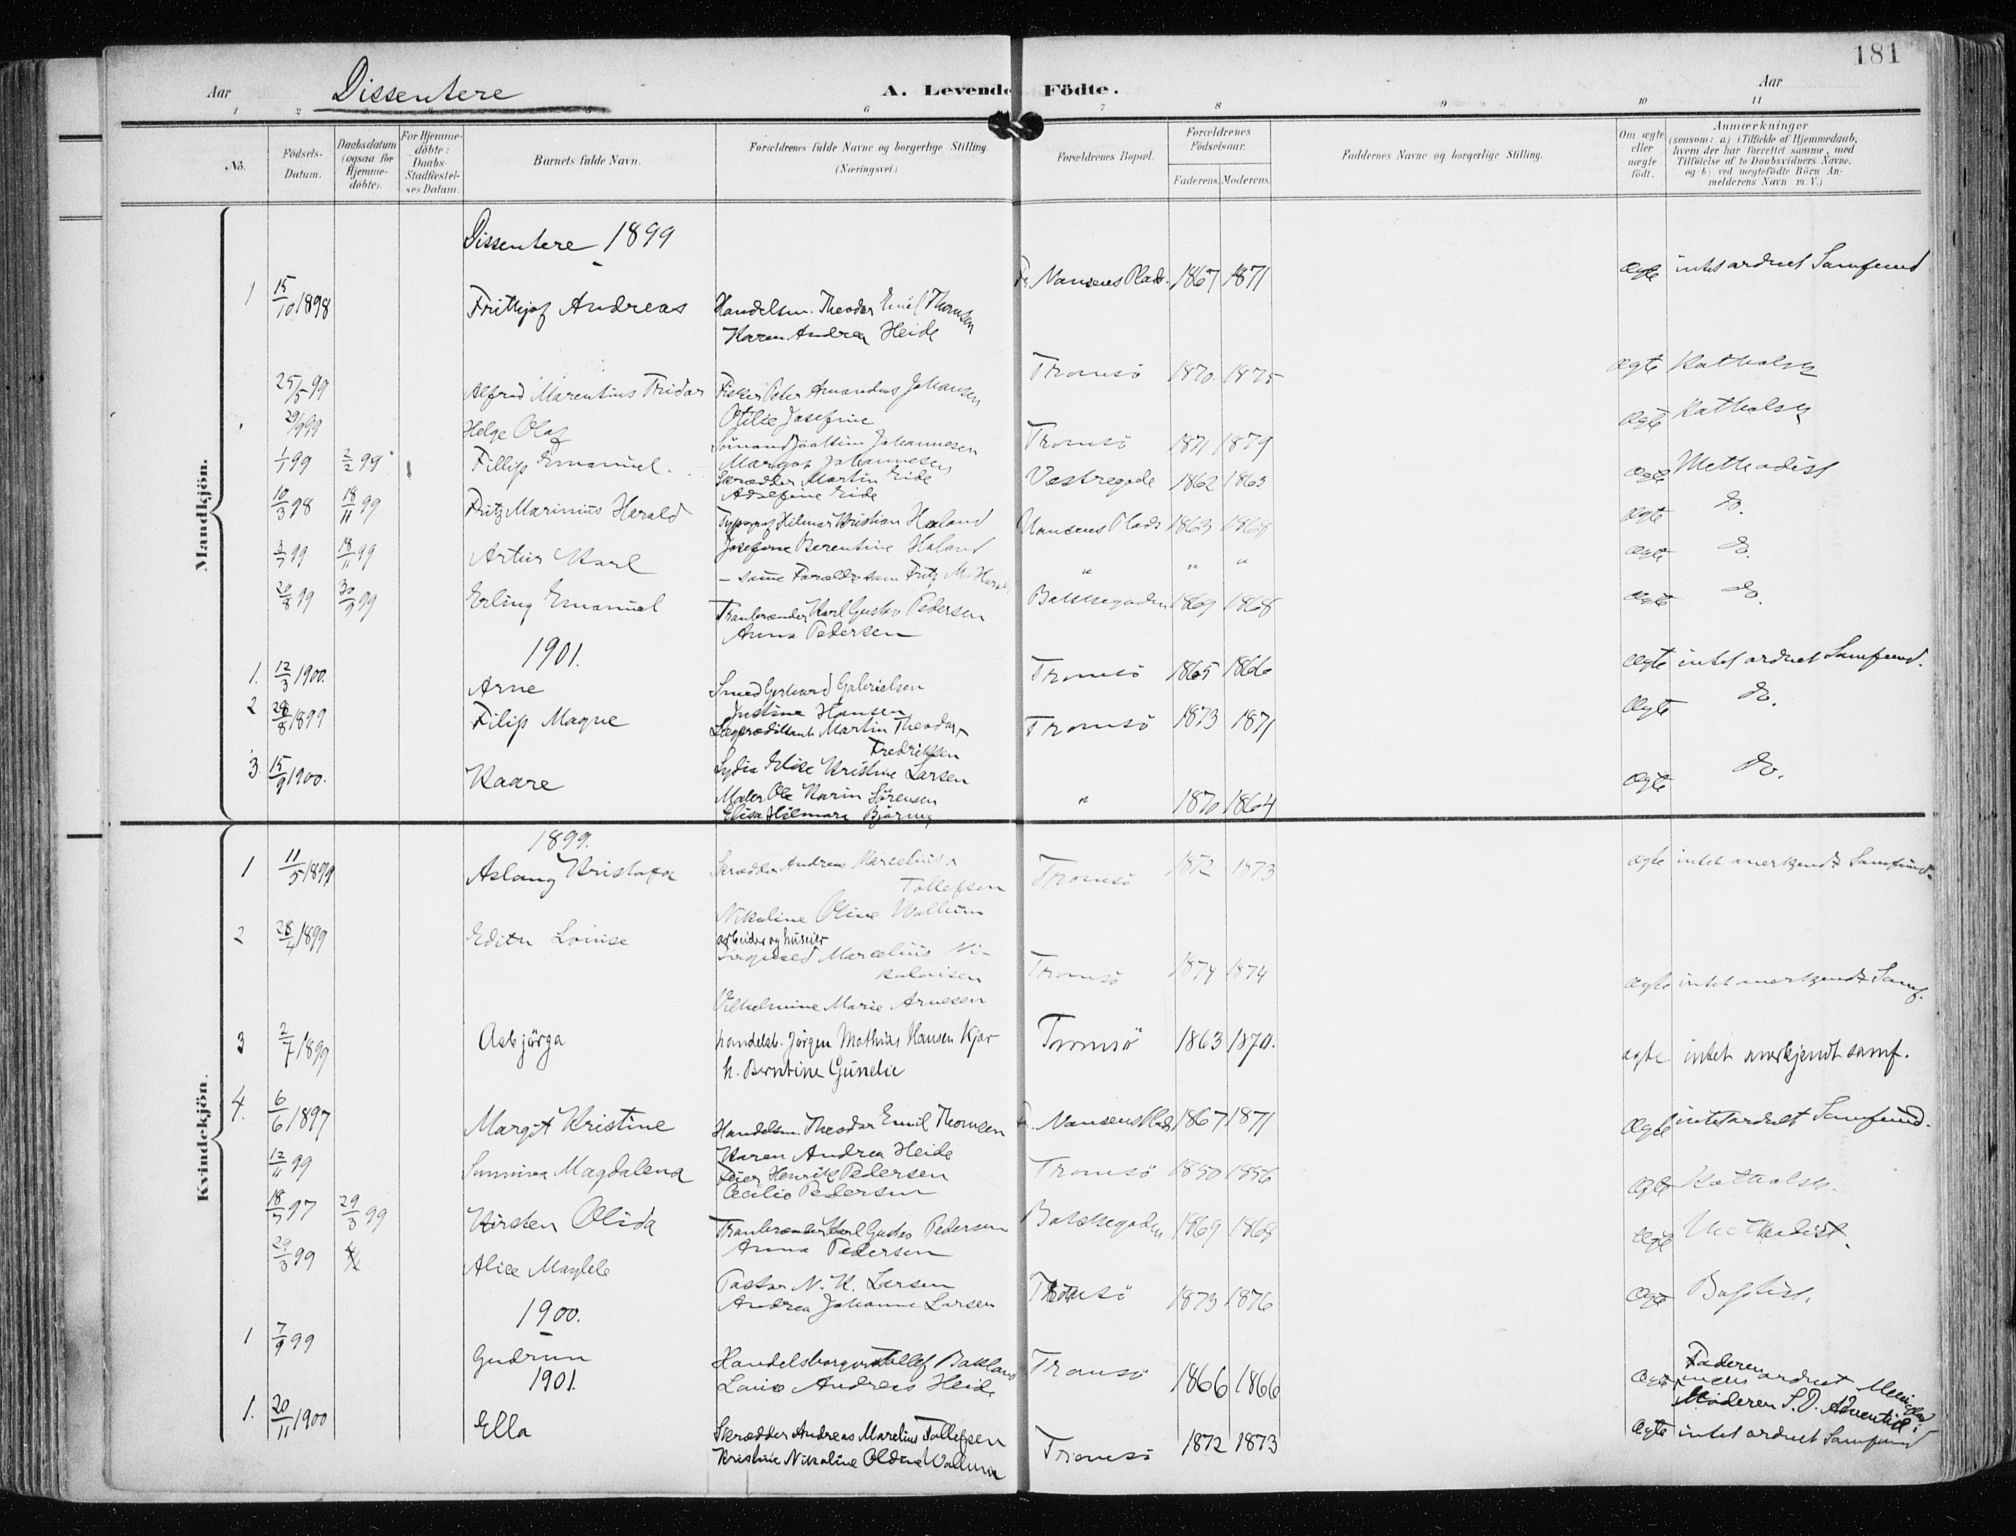 181
Aar Dissentere A. Levende Födte. Aar
1 2 6 7 8 9 10 11
No. Födsels-Datum. Daabsdatum (ogsaa för Hjemme-döbte). For Hjemme-döbte: Daabs-Stadfæstel-ses Datum. Barnets fulde Navn. Forældrenes fulde Navne og borgerlige Stilling. (Næringsvei.) Forældrenes Bopæl. Forældrenes Födselsaar. Faderens. Moderens. Faddernes Navne og borgerlige Stilling. Om ægte eller uægte födt. Anmærkninger (saasom: a) i Tilfælde af Hjemmedaab, hvem der har forrettet samme, med Tilföielse af to Daabsvidners Navne, og b) ved uægtefödte Börn An-melderens Navn m. V.)
Mandkjön.
Dissentere 1899
1 15/10 1898 Frithjof Andreas Handelsm. Theodor Emil Thomsen Fr. Nansens Plads. 1867 1871 ægte intet ordnet Samfund
Karen Andrea Heide
25/5 99 Alfred Marentius Fridar Fisker Peter Amandus Johansen Tromsö 1870 1875 ægte Katholsk
Otilie Josefine
29/9 99 Helge Olaf Johannesen Tromsö 1871 1879 ægte Katholsk
Margot Johannesen
1/1 99 2/2 99 Fillip Emanuel Skrædder Martin Eide Vestregade 1862 1863 ægte Methodist
Adsefine Eide
10/3 98 18/11 99 Fritz Marinius Harald Typograf Hilmar Kristian Haland Nansens Plads 1863 1868 ægte do.
Josefine Berentine Haland
3/7 99 18/11 99 Artur Karl – samme Foræld. som Fritz M. Harald " " " ægte do.
29/8 99 30/9 99 Erling Emanuel Tranbrænder Karl Gustav Pedersen Bakkegaden 1869 1868 ægte do.
Anna Pedersen
1901.
1. 12/3 1900. Arne Smed Gerhard Gabrielsen Tromsö 1865 1866 ægte intet ordnet Samfund.
Justine Hansen
2 28/8 1899 Filip Magne Martin Theodor Tromsö 1873 1871 ægte do.
Fredriksen
Lydia Elise Kristine Larsen
3. 15/9 1900. Kaare Maler Ole Karin Sörensen " 1870 1864 ægte do.
Elisa Hilmara Björing
Kvindekjön.
1899.
1 11/5 1899 Aslaug Kristofa Skrædder Andreas Marcelius Tromsö 1872 1873 ægte intet anerkjendt Samfund.
Tollefsen
Nikoline Oline Wallum
2 28/4 1899 Edith Louise arbeider og huseier
Marcelius Ni-
kolaisen Tromsö 1874 1874 ægte intet anerkjendt Samf.
Vilhelmine Marie Arnesen
3 2/7 1899 Asbjörga handelsb. Jörgen Mathias Hansen Kjær Tromsö 1863 1870. ægte intet anerkjendt samf.
h. Berntine Gunelie
4. 6/6 1897 Margit Kristine Handelsm. Theodor Emil Thomsen Fr. Nansens Plads 1867 1871 ægte intet ordnet Samfund.
Karen Andrea Heide
12/11 99 Sunniva Magdalena Feier Henrik Pedersen Tromsö 1850 1856 ægte Katholsk.
Cecilie Pedersen
18/7 97 29/3 99 Kirsten Olida Tranbrænder Karl Gustav Pedersen Bakkegaden 1869 1868 ægte Methodist.
Anna Pedersen
29/3 99 Alice Pastor N. K. Larsen Tromsö 1873 1876 ægte Baptist.
Andrea Johanne Larsen
1900.
1 7/9 99 Gudrun Handelsborger Tollef Bakland Tromsö 1866 1866 ægte Faderen intet ordnet
Andrea Heide Moderen S. D. Adventist
1901.
1. 20/11 1900 Ella Skrædder Andreas Marelius Tollefsen Tromsö 1872 1873 ægte intet ordnet Samfund
Kristine Nikoline Oldine Wallum